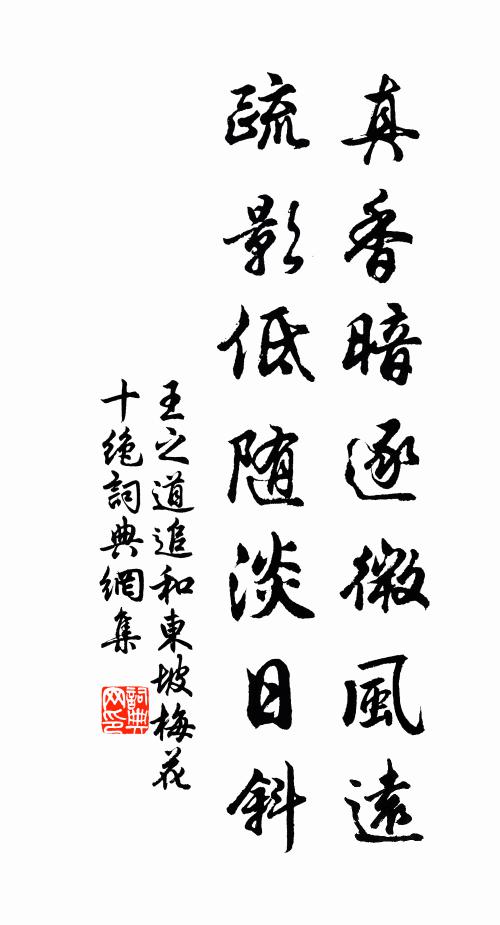 真香暗逐微風遠
疏影低随淡日斜
王之道追和東坡梅花
十绝詞典網集
詞典
网印